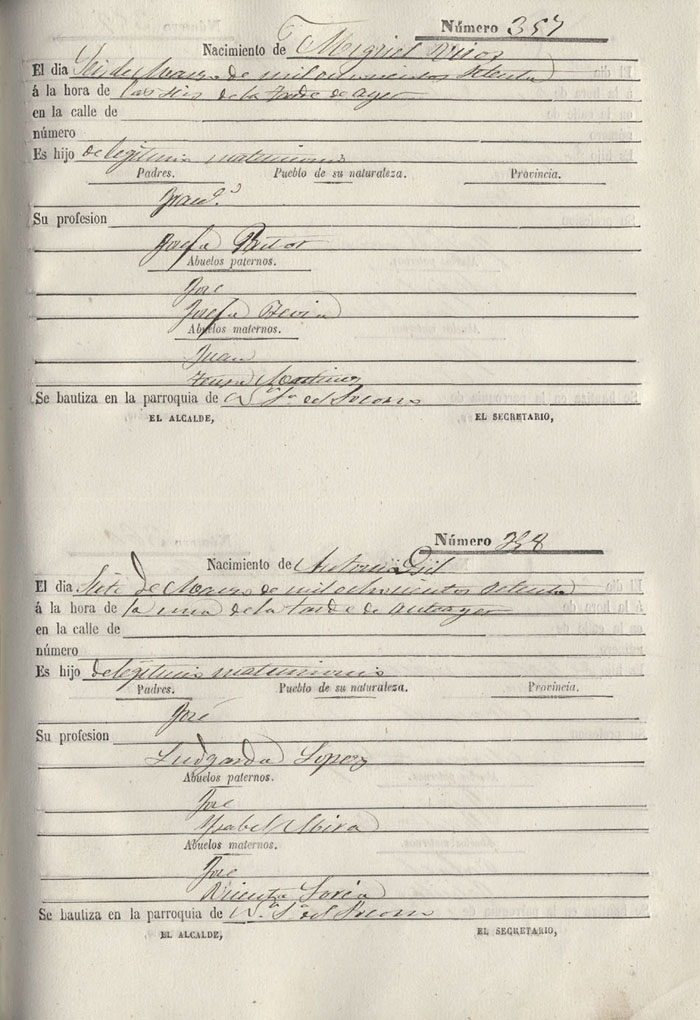 Número 357
Nacimiento de Miguel Rios
El dia Seis de Marzo de mil ochocientos setenta
á la hora de las seis de la tarde de ayer
en la calle de
número
Es hijo de legitimo matrimonio
Padres. Pueblo de su naturaleza. Provincia.
Franco.
Su profesion
Josefa
Abuelos paternos.
José
Josefa
Abuelos maternos.
Juan
Teresa Martinez
Se bautiza en la parroquia de N.ª S.ª del Socorro
EL ALCALDE, EL SECRETARIO,
Número 358
Nacimiento de Antonio Gil
El dia Siete de Marzo de mil ochocientos setenta
á la hora de la una de la tarde de anteayer
en la calle de
número
Es hijo de legitimo matrimonio
Padres. Pueblo de su naturaleza. Provincia.
José
Su profesion
Ludgarda Lopez
Abuelos paternos.
José
Ysabel Mira
Abuelos maternos.
José
Vicenta Soria
Se bautiza en la parroquia de N.ª S.ª del Socorro
EL ALCALDE, EL SECRETARIO,